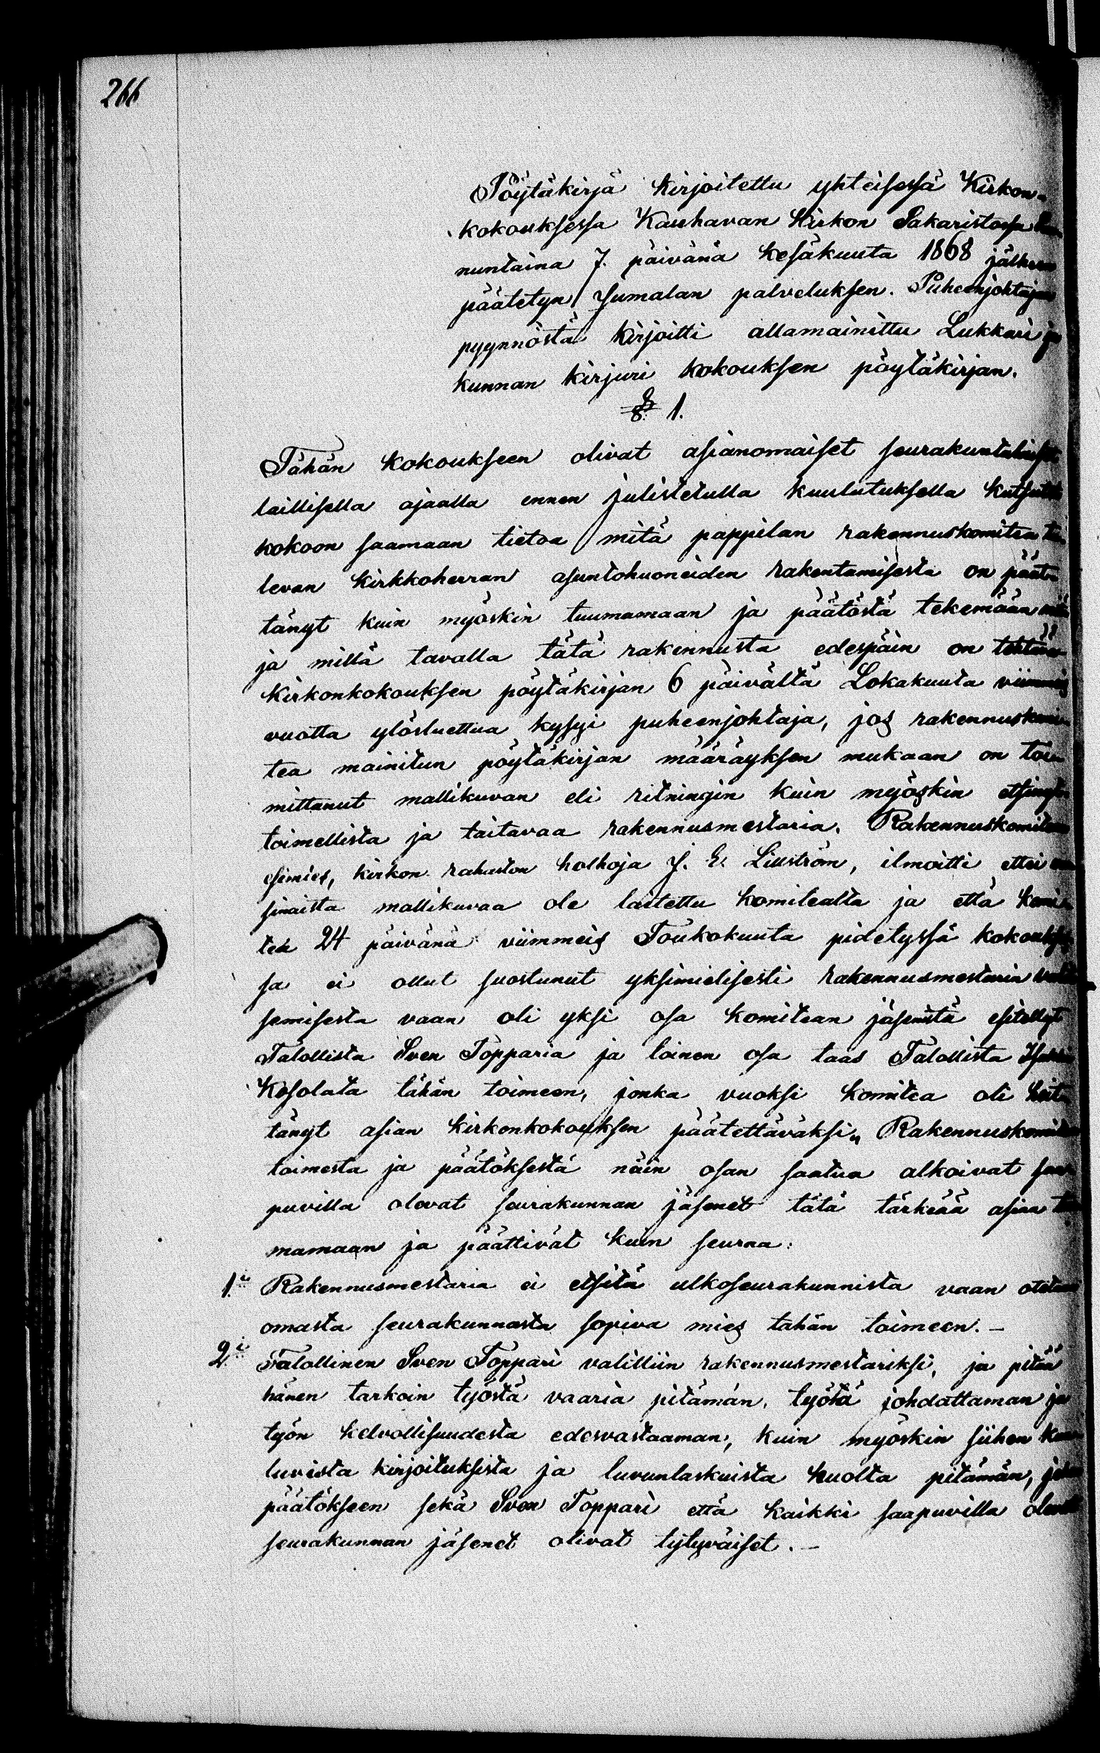 266
Pöytäkirja kirjoitettu yhteisessä Kirkon-
kokouksessa Kauhavan Kirkon Sakaristossa
nuntaina 7. päivänä kesäkuuta 1868 jälkeen
päätetyn Jumalan palveluksen. Puheenjohtajan
pyynnöstä kirjoitti allamainittu Lukkari ja
kunnan kirjuri kokouksen pöytäkirjan.
§ 1.
Tähän kokoukseen olivat asianomaiset seurakuntalaiset
laillisella ajaalla ennen julistetulla kuulutuksella kutsutut
kokoon saamaan tietoa mitä pappilan rakennuskomitea
levan kirkkoherran asuntohuoneiden rakentamisesta on päät-
tänyt kuin myöskin tuumamaan ja päätöstä tekemään
ja millä tavalla tätä rakennusta edespäin on tehtävä
Kirkonkokouksen pöytäkirjan 6 päivältä Lokakuuta viimmeis
vuotta ylösluettua kysyi puheenjohtaja, jos rakennuskomi-
tea mainitun pöytäkirjan määräyksen mukaan on toi-
mittanut mallikuvan eli ritningin kuin myöskin etsinyt
toimellista ja taitavaa rakennusmestaria. Rakennuskomitean
esimies, kirkon rahaston holhoja J. E. Lillström, ilmoitti ettei
sinaista mallikuvaa ole laitettu komitealta ja että komi-
tea 24 päivänä viimmeis Toukokuuta pidetyssä kokoukses-
sa ei ollut suostunut yksimielisesti rakennusmestarin valit-
semisesta vaan oli yksi osa komitean jäsenistä esitellyt
Talollista Sven Topparia ja toinen osa taas Talollista
Kosolata tähän toimeen, jonka vuoksi komitea oli heit-
tänyt asian kirkonkokouksen päätettäväksi. Rakennuskomitean
toimesta ja päätöksestä näin osan saatua alkoivat saa-
puvilla olevat seurakunnan jäsenet tätä tärkeää asiaa tuu-
mamaan ja päättivät kuin seuraa:
1:ᵒ Rakennusmestaria ei etsitä ulkoseurakunnista vaan otetaan
omasta seurakunnasta sopiva mies tähän toimeen. –
2:ᵒ Talollinen Sven Toppari valittiin rakennusmestariksi, ja pitää
hänen tarkoin työstä vaaria pitämän, työtä johdattaman ja
työn kelvollisuudesta edesvastaaman, kuin myöskin siihen kuu-
luvista kirjoituksista ja luvunlaskuista huolta pitämän, johon
päätökseen sekä Sven Toppari että kaikki saapuvilla olevat
seurakunnan jäsenet olivat tytyväiset. –